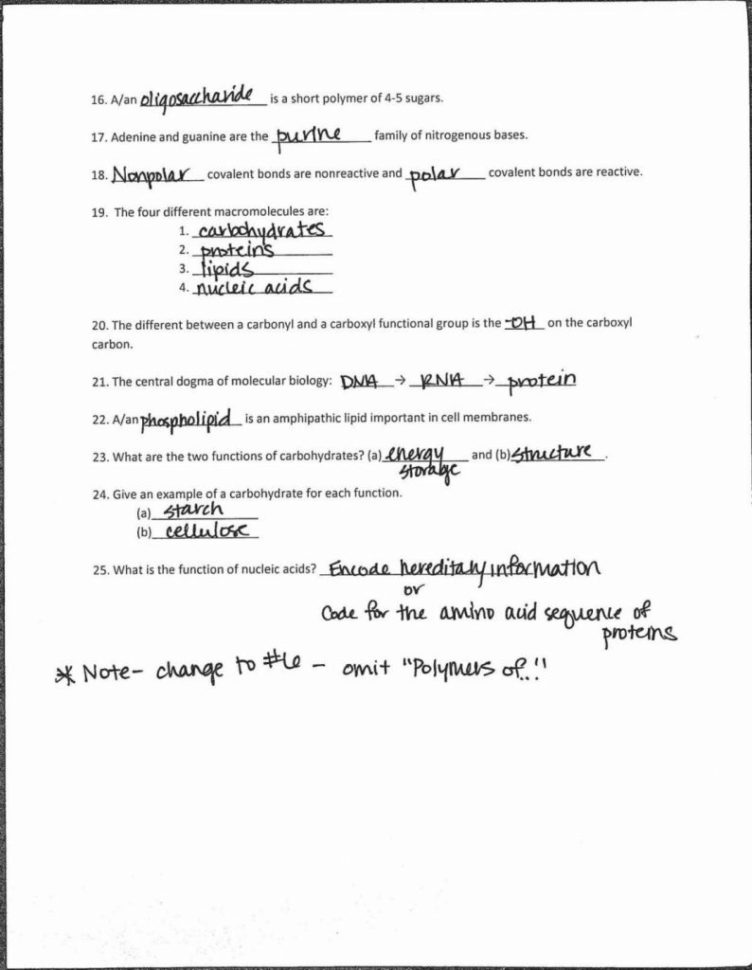 16. A/an oligosaccharide is a short polymer of 4-5 sugars.
17. Adenine and guanine are the purine family of nitrogenous bases.
18. Nonpolar covalent bonds are nonreactive and polar covalent bonds are reactive.
19. The four different macromolecules are:
1. carbohydrates
2. proteins
3. lipids
4. nucleic acids
20. The different between a carbonyl and a carboxyl functional group is the -OH on the carboxyl
carbon.
21. The central dogma of molecular biology: DNA → RNA → protein
22. A/an phospholipid is an amphipathic lipid important in cell membranes.
23. What are the two functions of carbohydrates? (a) energy and (b) structure.
storage
24. Give an example of a carbohydrate for each function.
(a) starch
(b) cellulose
25. What is the function of nucleic acids? Encode hereditary information
or
Code for the amino acid sequence of
proteins
* Note- change to #6 - omit "Polymers of.."